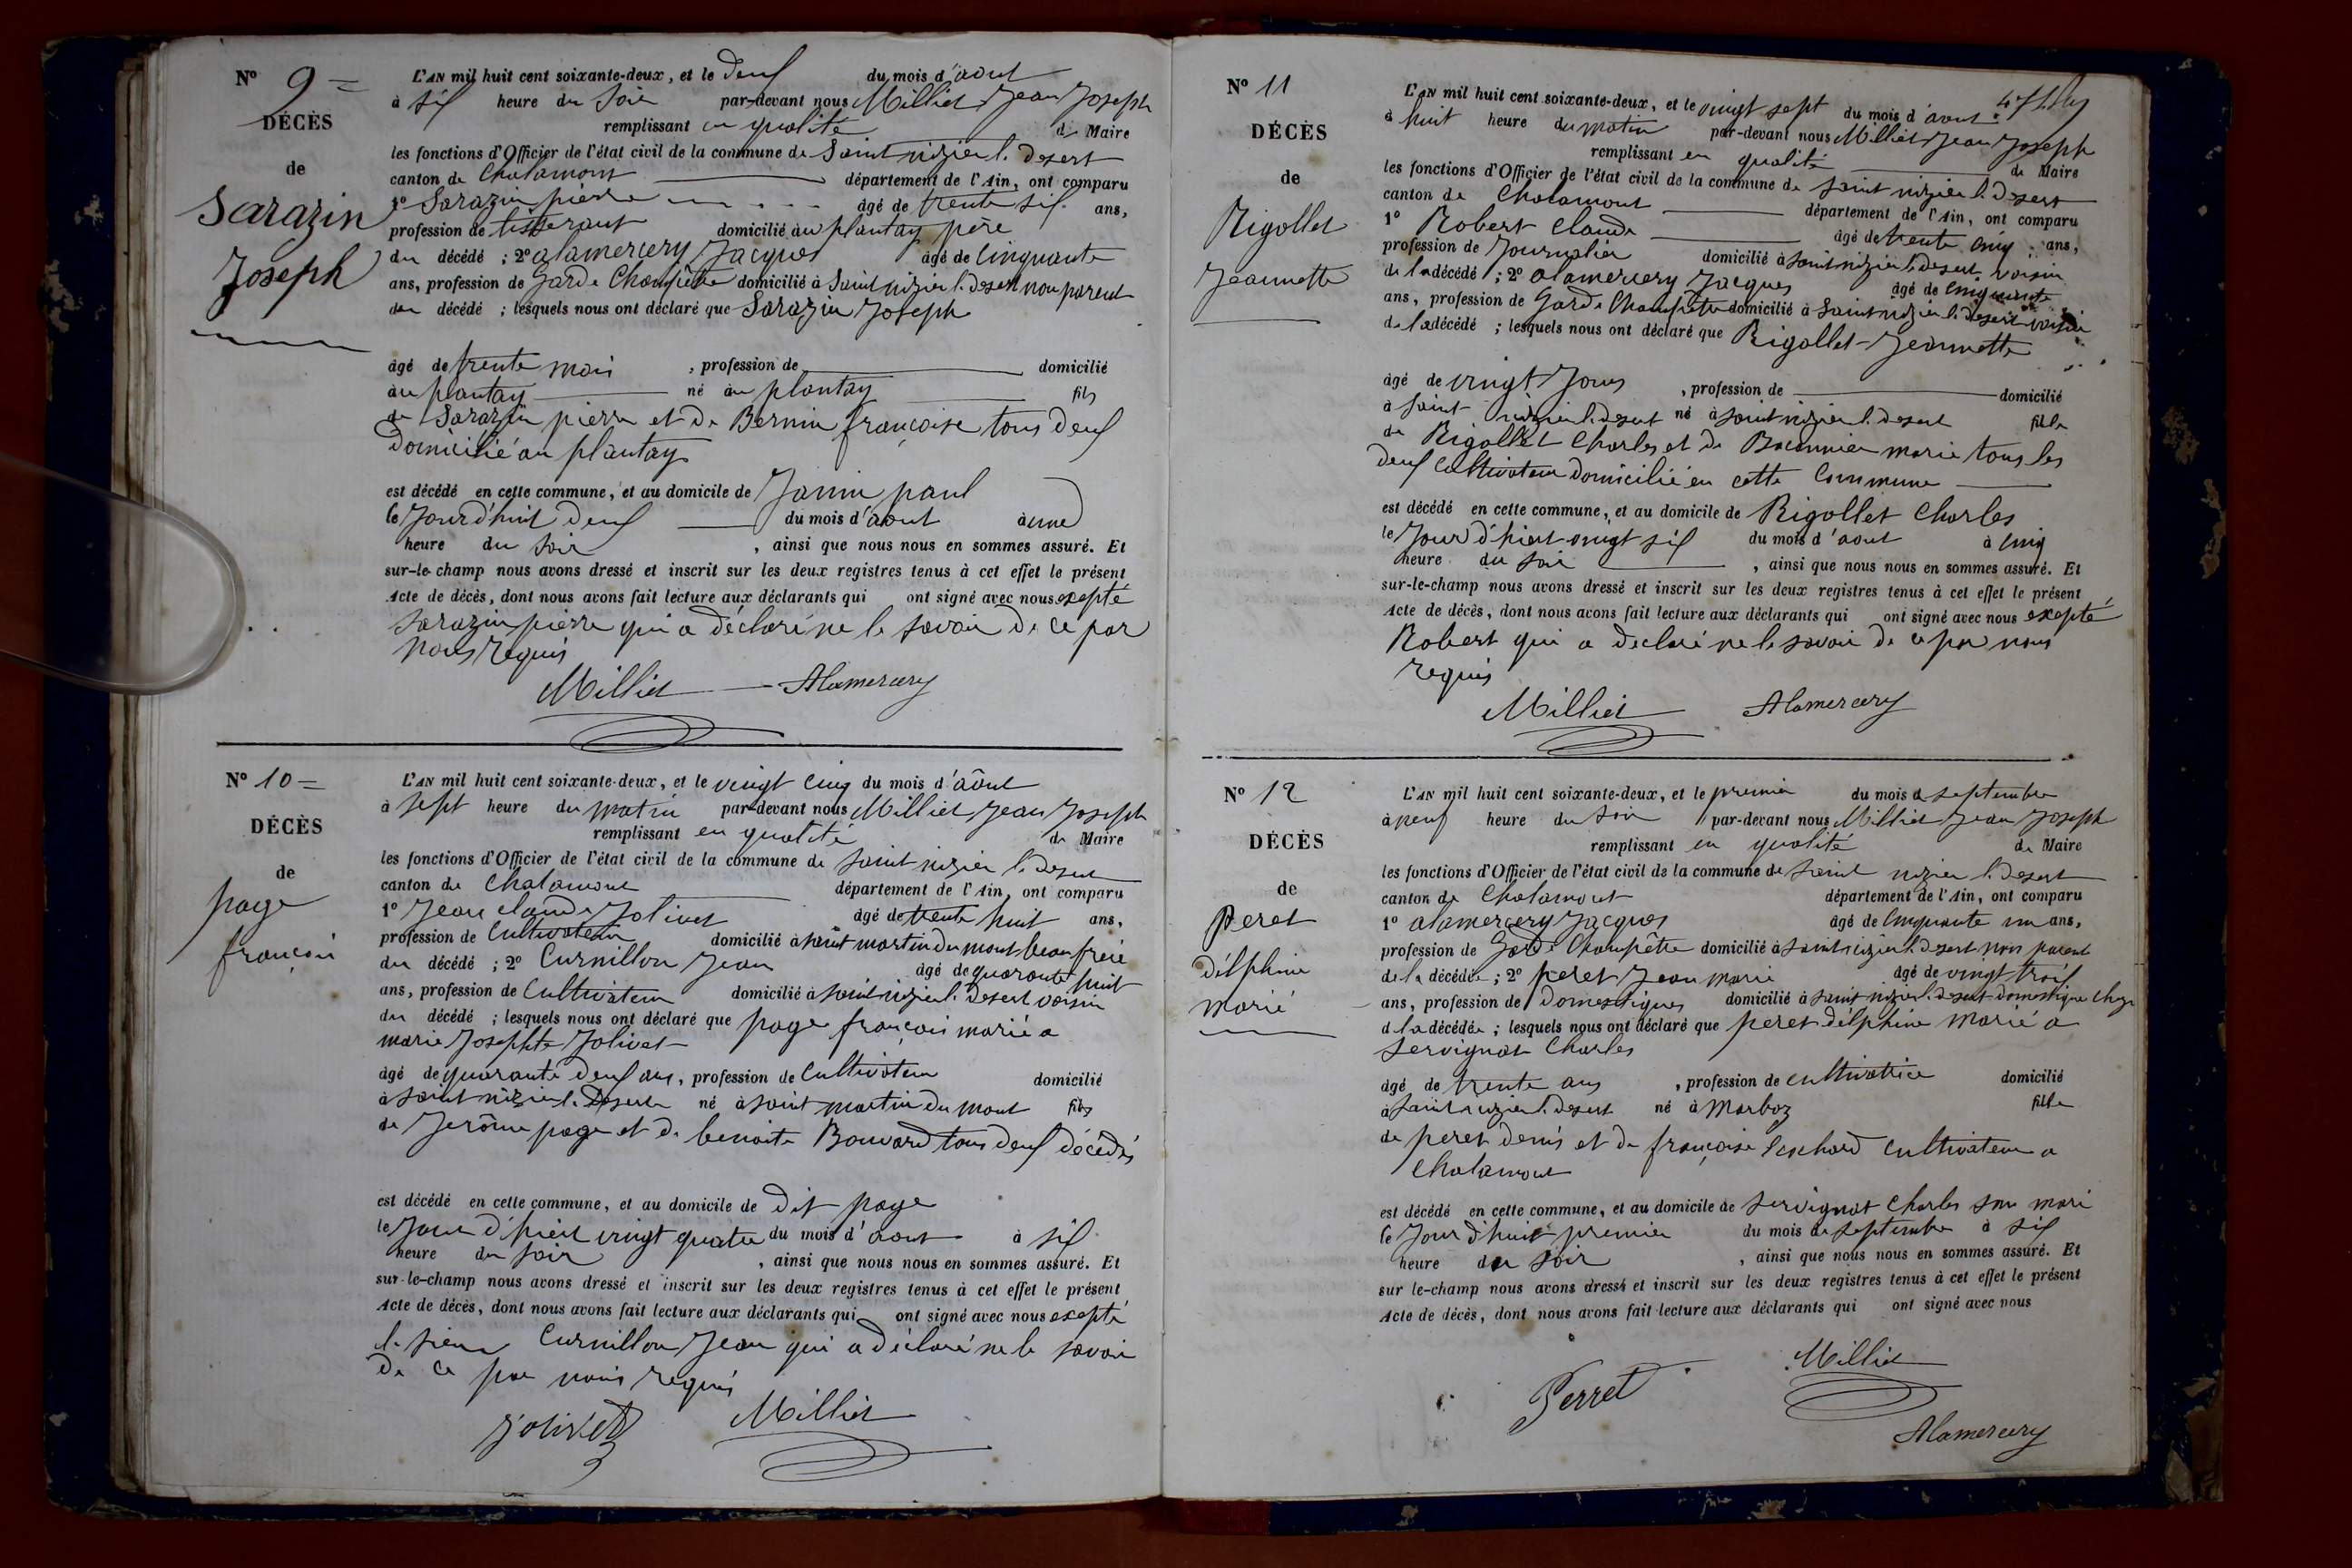 N° 9 =
DÉCÈS
de
Sarazin
Joseph
L'AN mil huit cent soixante-deux, et le deux du mois d'aout
à six heure du soir par-devant nous Milliet Jean Joseph
remplissant en qualité de Maire
les fonctions d'Officier de l'état civil de la commune de Saint nizier le desert
canton de Chalamont département de l'Ain, ont comparu
1° Sarazin pierre âgé de trente six ans,
profession de tisserant domicilié au plantay père
du décédé ; 2° alamercery Jacques âgé de cinquante
ans, profession de garde Champêtre domicilié à Saint nizier le desert non parent
du décédé ; lesquels nous ont déclaré que Sarazin Joseph
âgé de trente mois , profession de domicilié
au plantay né au plantay fils
de Sarazin pierre et de Bernin françoise tous deux
domicilié au plantay
est décédé en cette commune, et au domicile de Janin paul
le Jourd'huit deux du mois d'aout à une
heure du soir , ainsi que nous nous en sommes assuré. Et
sur-le-champ nous avons dressé et inscrit sur les deux registres tenus à cet effet le présent
Acte de décès, dont nous avons fait lecture aux déclarants qui ont signé avec nous exepté
Sarazin pierre qui a déclaré ne le savoir de ce par
nous requis
Milliet Alamercery
N° 10 =
DÉCÈS
de
page
françois
L'AN mil huit cent soixante-deux, et le vingt cinq du mois d'aôut
à sept heure du matin par-devant nous Milliet Jean Joseph
remplissant en qualité de Maire
les fonctions d'Officier de l'état civil de la commune de saint nizier le desert
canton de Chalamont département de l'Ain, ont comparu
1° Jean claude Jolivet âgé de trente huit ans,
profession de Cultivateur domicilié à saint martin du mont beau frere
du décédé ; 2° Curnillon Jean âgé de quarante huit
ans, profession de Cultivateur domicilié à saint nizier le desert voisin
du décédé ; lesquels nous ont déclaré que page françois marié a
marie Josephte Jolivet
âgé de quarante deux ans, profession de Cultivateur domicilié
à saint nizier le desert né à saint martin du mont fils
de Jerôme page et de benoite Bouvard tous deux décédés
est décédé en cette commune, et au domicile de dit page
le Jour d'hiert vingt quatre du mois d'aout à six
heure du soir , ainsi que nous nous en sommes assuré. Et
sur-le-champ nous avons dressé et inscrit sur les deux registres tenus à cet effet le présent
Acte de décès, dont nous avons fait lecture aux déclarants qui ont signé avec nous exepté
le sieur Curnillon Jean qui a déclaré ne le savoir
de ce par nous requis
Jolivet Milliet
N° 11
DÉCÈS
de
Rigollet
Jeannette
L'AN mil huit cent soixante-deux, et le vingt sept du mois d'aout
à huit heure du matin par-devant nous Milliet Jean Joseph
remplissant en qualité de Maire
les fonctions d'Officier de l'état civil de la commune de saint nizier le desert
canton de Chalamont département de l'Ain, ont comparu
1° Robert Claude âgé de trente cinq ans,
profession de Journalier domicilié à saint nizier le desert voisin
de la décédé ; 2° alamercery Jacques âgé de cinquante
ans, profession de Garde Champêtre domicilié à saint nizier le desert voisin
de la décédé ; lesquels nous ont déclaré que Rigollet Jeannette
âgé de vingt Jours , profession de domicilié
à saint nizier le desert né à saint nizier le desert fille
de Rigollet Charles et de Baconnier marie tous les
deux cultivateur domicilié en cette Commune
est décédé en cette commune, et au domicile de Rigollet Charles
le Jour d'hiert vingt six du mois d'aout à cinq
heure du soir , ainsi que nous nous en sommes assuré. Et
sur-le-champ nous avons dressé et inscrit sur les deux registres tenus à cet effet le présent
Acte de décès, dont nous avons fait lecture aux déclarants qui ont signé avec nous exepté
Robert qui a declaré ne le savoir de ce par nous
requis
Milliet Alamercery
N° 12
DÉCÈS
de
peret
délphine
marié
L'AN mil huit cent soixante-deux, et le premier du mois de septembre
à neuf heure du soir par-devant nous Milliet Jean Joseph
remplissant en qualité de Maire
les fonctions d'Officier de l'état civil de la commune de saint nizier le desert
canton de Chalamont département de l'Ain, ont comparu
1° alamercery Jacques âgé de cinquante un ans,
profession de Garde Champêtre domicilié à saint nizier le desert non parent
de la décédée ; 2° peret Jean marie âgé de vingt trois
ans, profession de domestiques domicilié à saint nizier le desert domestique chez
de la décédée ; lesquels nous ont déclaré que peret délphine marié a
servignat Charles
âgé de trente ans , profession de cultivatrice domicilié
à saint nizier le desert né à Marboz fille
de peret denis et de françoise cultivateur a
Chalamont
est décédé en cette commune, et au domicile de servignat Charles son mari
le Jourd'huit premier du mois de septembre à six
heure du soir , ainsi que nous nous en sommes assuré. Et
sur le-champ nous avons dressé et inscrit sur les deux registres tenus à cet effet le présent
Acte de décès, dont nous avons fait lecture aux déclarants qui ont signé avec nous
Perret Milliet
Alamercery